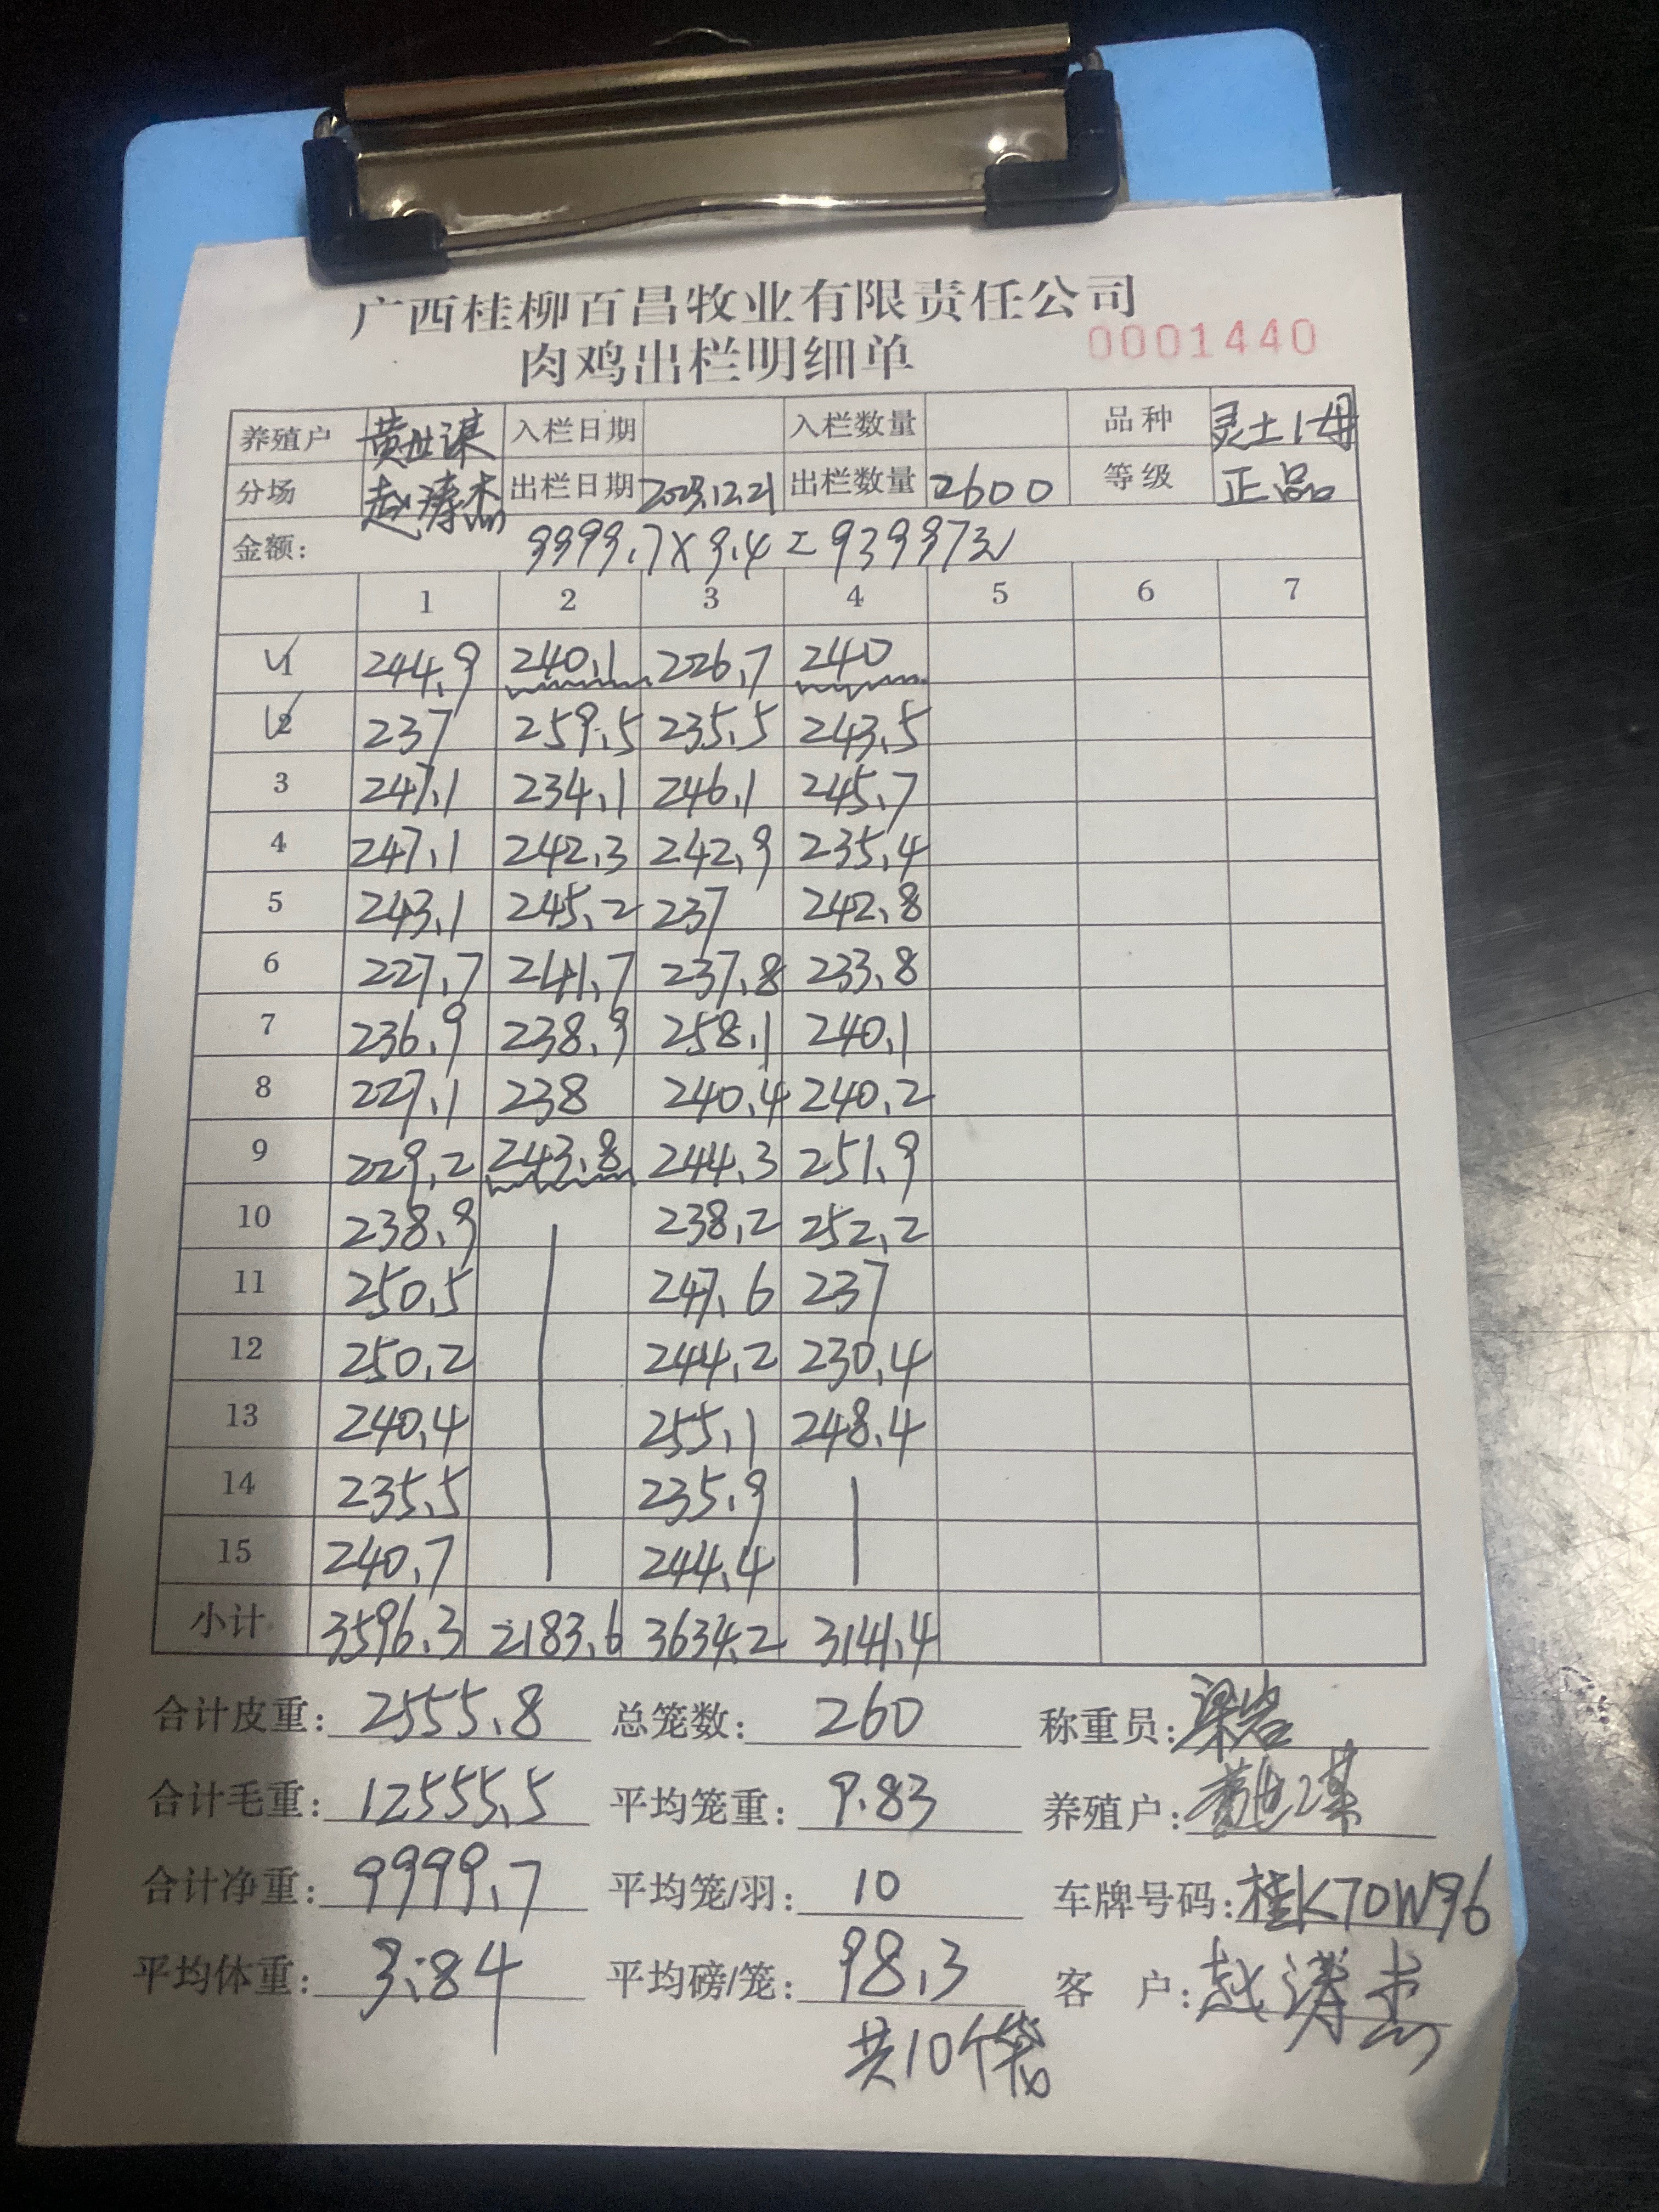 广西桂柳百昌牧业有限责任公司
肉鸡出栏明细单 0001440
养殖户 黄世谋 入栏日期 入栏数量 品种 灵土1母
分场 赵涛杰 出栏日期 2023.12.21 出栏数量 2600 等级 正品
金额: 9999.7×9.4=93997元
1 2 3 4 5 6 7
1 244.9 240.1 226.7 240
2 237 259.5 235.5 243.5
3 247.1 234.1 246.1 245.7
4 247.1 242.3 242.9 235.4
5 243.1 245.2 237 242.8
6 227.7 241.7 237.8 233.8
7 236.9 238.9 258.1 240.1
8 227.1 238 240.4 240.2
9 229.2 243.8 244.3 251.9
10 238.9 238.2 252.2
11 250.5 247.6 237
12 250.2 244.2 230.4
13 240.4 255.1 248.4
14 235.5 235.9
15 240.7 244.4
小计 3596.3 2183.6 3634.2 3141.4
合计皮重: 2555.8 总笼数: 260 称重员:
合计毛重: 12555.5 平均笼重: 9.83 养殖户: 黄世谋
合计净重: 9999.7 平均笼/羽: 10 车牌号码: 桂K70W96
平均体重: 3.84 平均磅/笼: 98.3 客 户: 赵涛杰
共10个袋